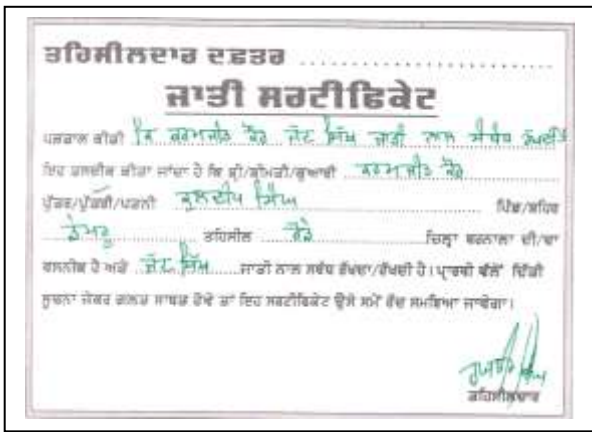 ਤਹਿਸੀਲਦਾਰ ਦਫ਼ਤਰ ........................
ਜਾਤੀ ਸਰਟੀਫਿਕੇਟ
ਪੜਤਾਲ ਕੀਤੀ ਕਿ ਕਰਮਜੀਤ ਕੌਰ ਜੱਟ ਸਿੱਖ ਜਾਤੀ ਨਾਲ ਸੰਬੰਧ ਰੱਖਦੀ
ਇਹ ਤਸਦੀਕ ਕੀਤਾ ਜਾਂਦਾ ਹੈ ਕਿ ਸ਼੍ਰੀ/ਸ਼੍ਰੀਮਤੀ/ਕੁਆਰੀ ਕਰਮਜੀਤ ਕੌਰ
ਪੁੱਤਰ/ਪੁੱਤਰੀ/ਪਤਨੀ ਕੁਲਦੀਪ ਸਿੰਘ ਪਿੰਡ/ਸ਼ਹਿਰ
ਤਹਿਸੀਲ ਜ਼ਿਲ੍ਹਾ ਬਰਨਾਲਾ ਦੀ/ਦਾ
ਵਸਨੀਕ ਹੈ ਅਤੇ ਜੱਟ ਸਿੱਖ ਜਾਤੀ ਨਾਲ ਸਬੰਧ ਰੱਖਦਾ/ਰੱਖਦੀ ਹੈ। ਪ੍ਰਾਰਥੀ ਵੱਲੋਂ ਦਿੱਤੀ
ਸੂਚਨਾ ਜੇਕਰ ਗਲਤ ਸਾਬਤ ਹੋਵੇ ਤਾਂ ਇਹ ਸਰਟੀਫਿਕੇਟ ਉਸੇ ਸਮੇਂ ਰੱਦ ਸਮਝਿਆ ਜਾਵੇਗਾ।
ਤਹਿਸੀਲਦਾਰ